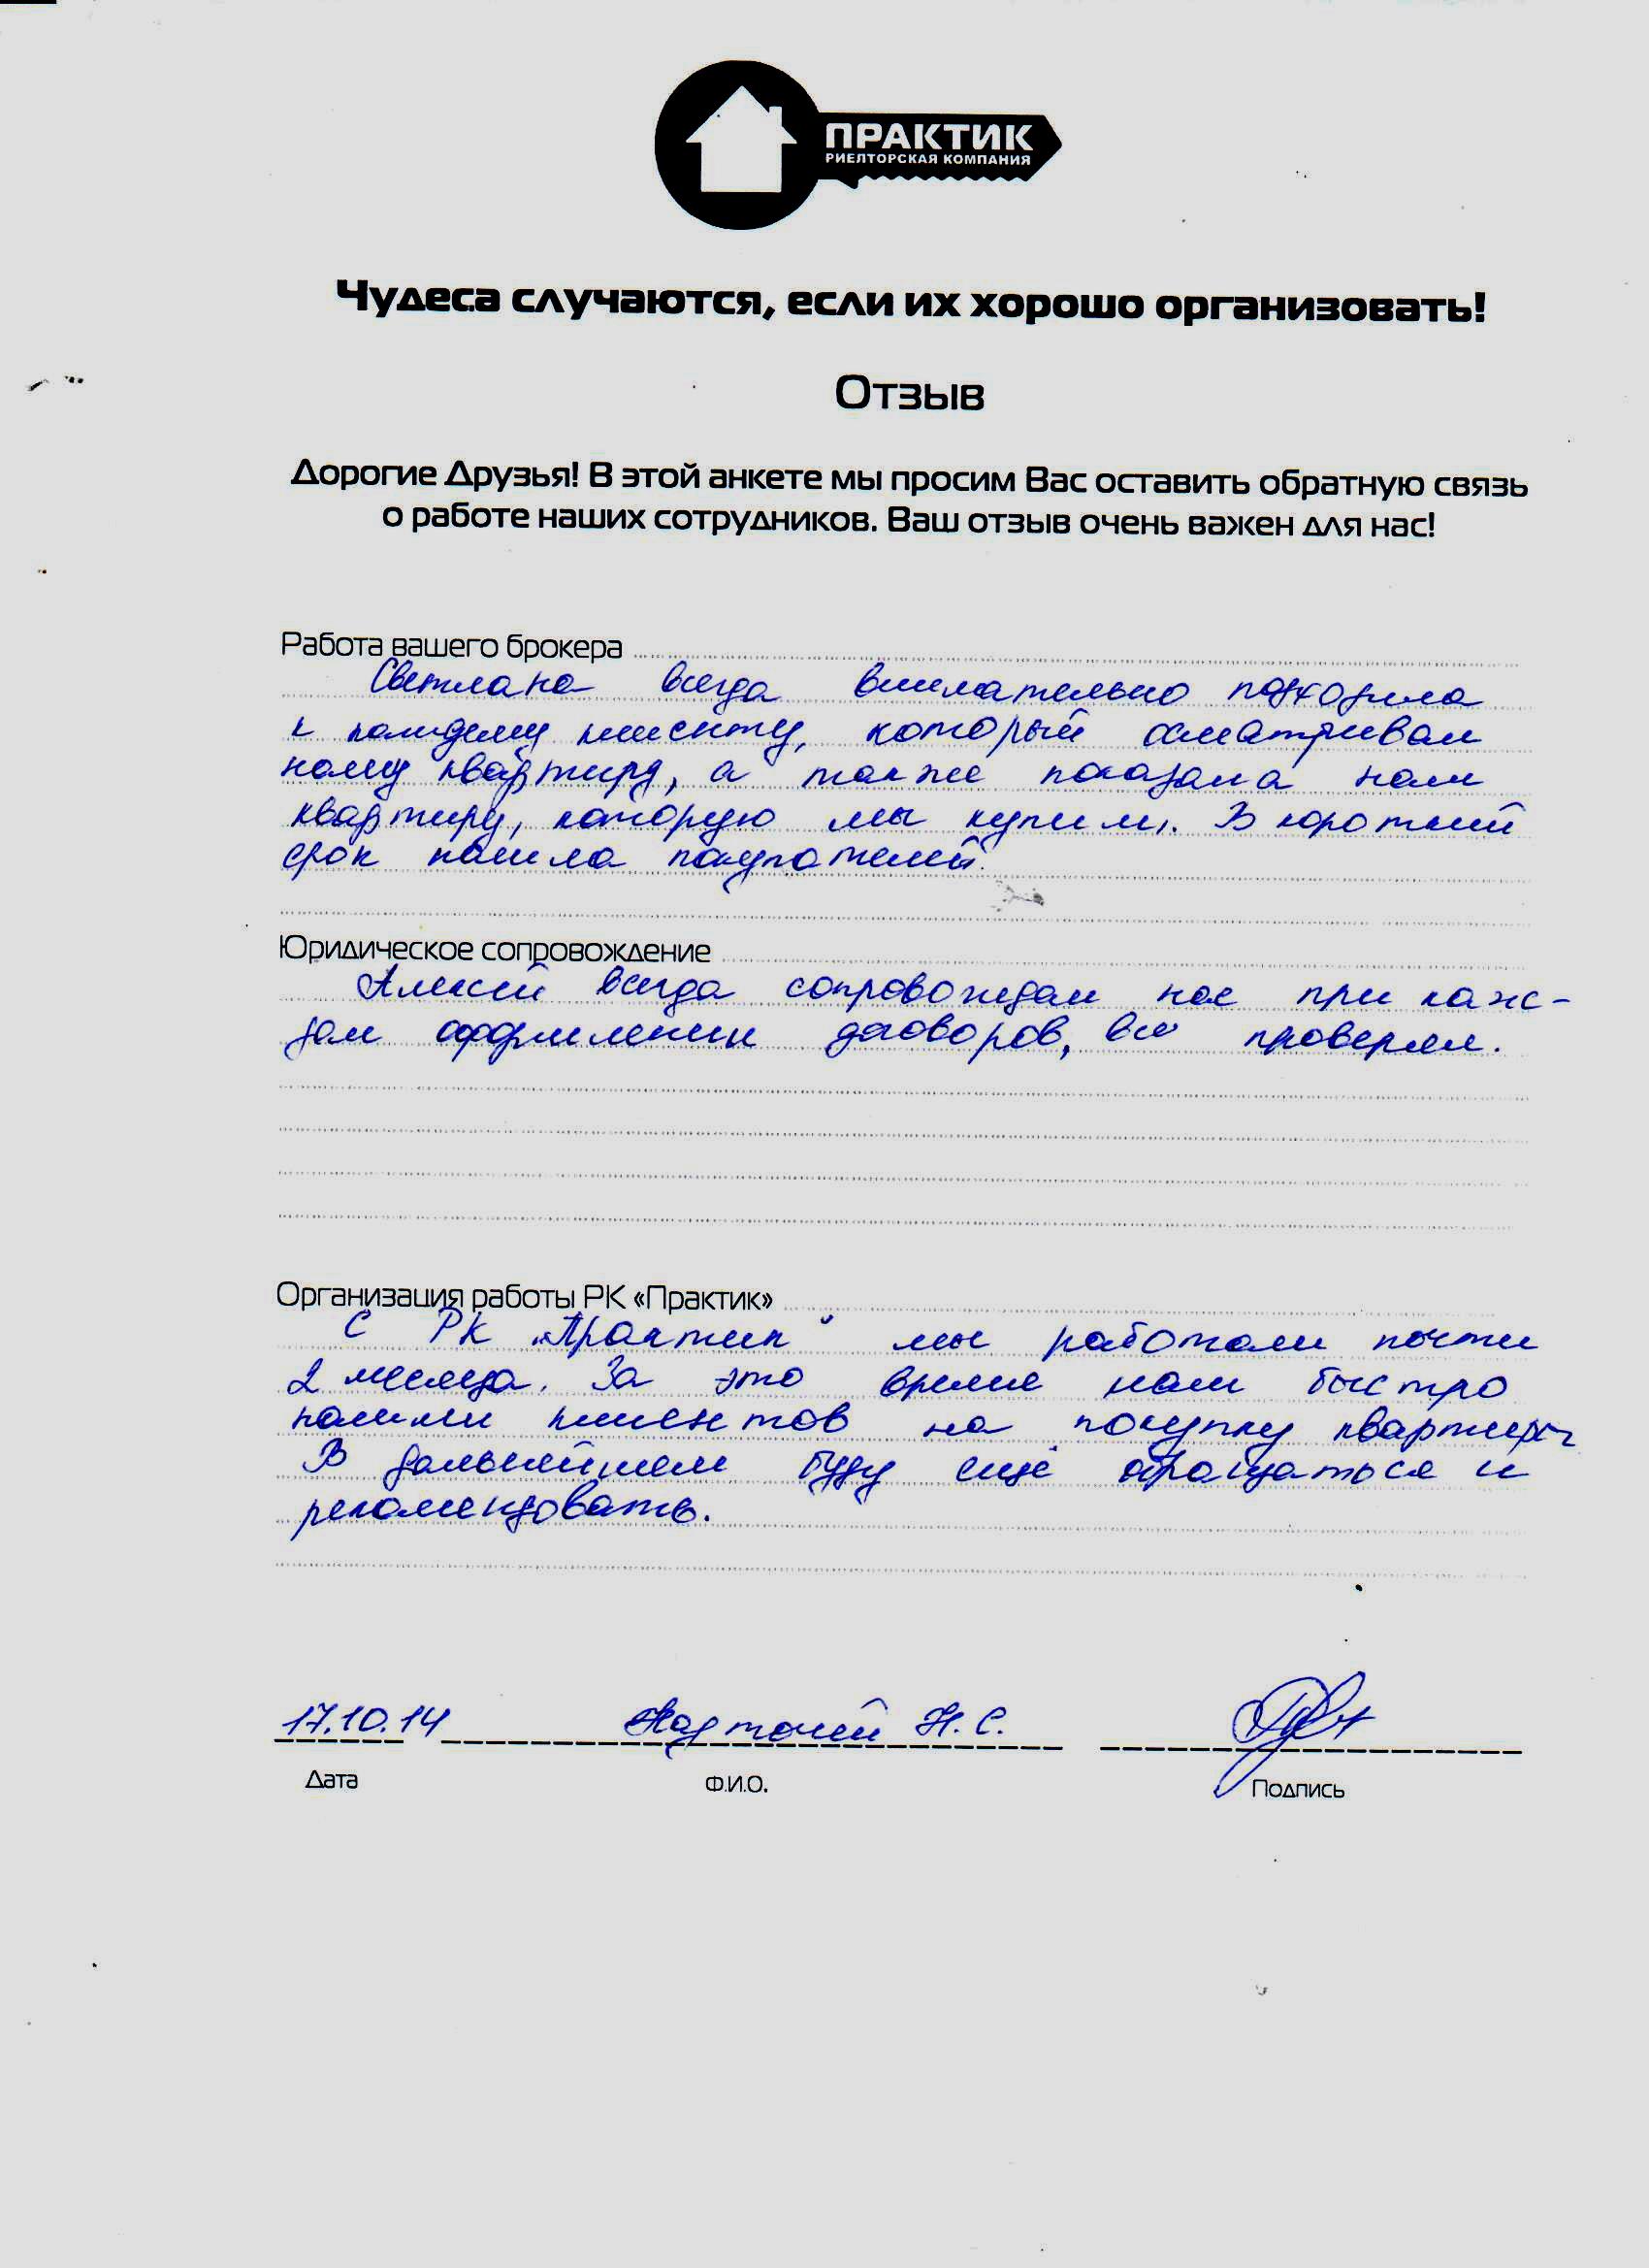 ПРАКТИК
РИЕЛТОРСКАЯ КОМПАНИЯ
Чудеса случаются, если их хорошо организовать!
Отзыв
Дорогие Друзья! В этой анкете мы просим Вас оставить обратную связь
о работе наших сотрудников. Ваш отзыв очень важен для нас!
Работа вашего брокера
Светлана всегда внимательно подходила
к каждому клиенту, который осматривал
нашу квартиру, а также показала нам
квартиру, которую мы купили. В короткий
срок нашла покупателей.
Юридическое сопровождение
Алексей всегда сопровождал нас при каж-
дом оформлении договоров, всё проверял.
Организация работы РК «Практик»
С РК „Практик“ мы работали почти
2 месяца. За это время нам быстро
нашли клиентов на покупку квартиры
В дальнейшем буду ещё обращаться и
рекомендовать.
17.10.14 Н. С.
Дата Ф.И.О. Подпись